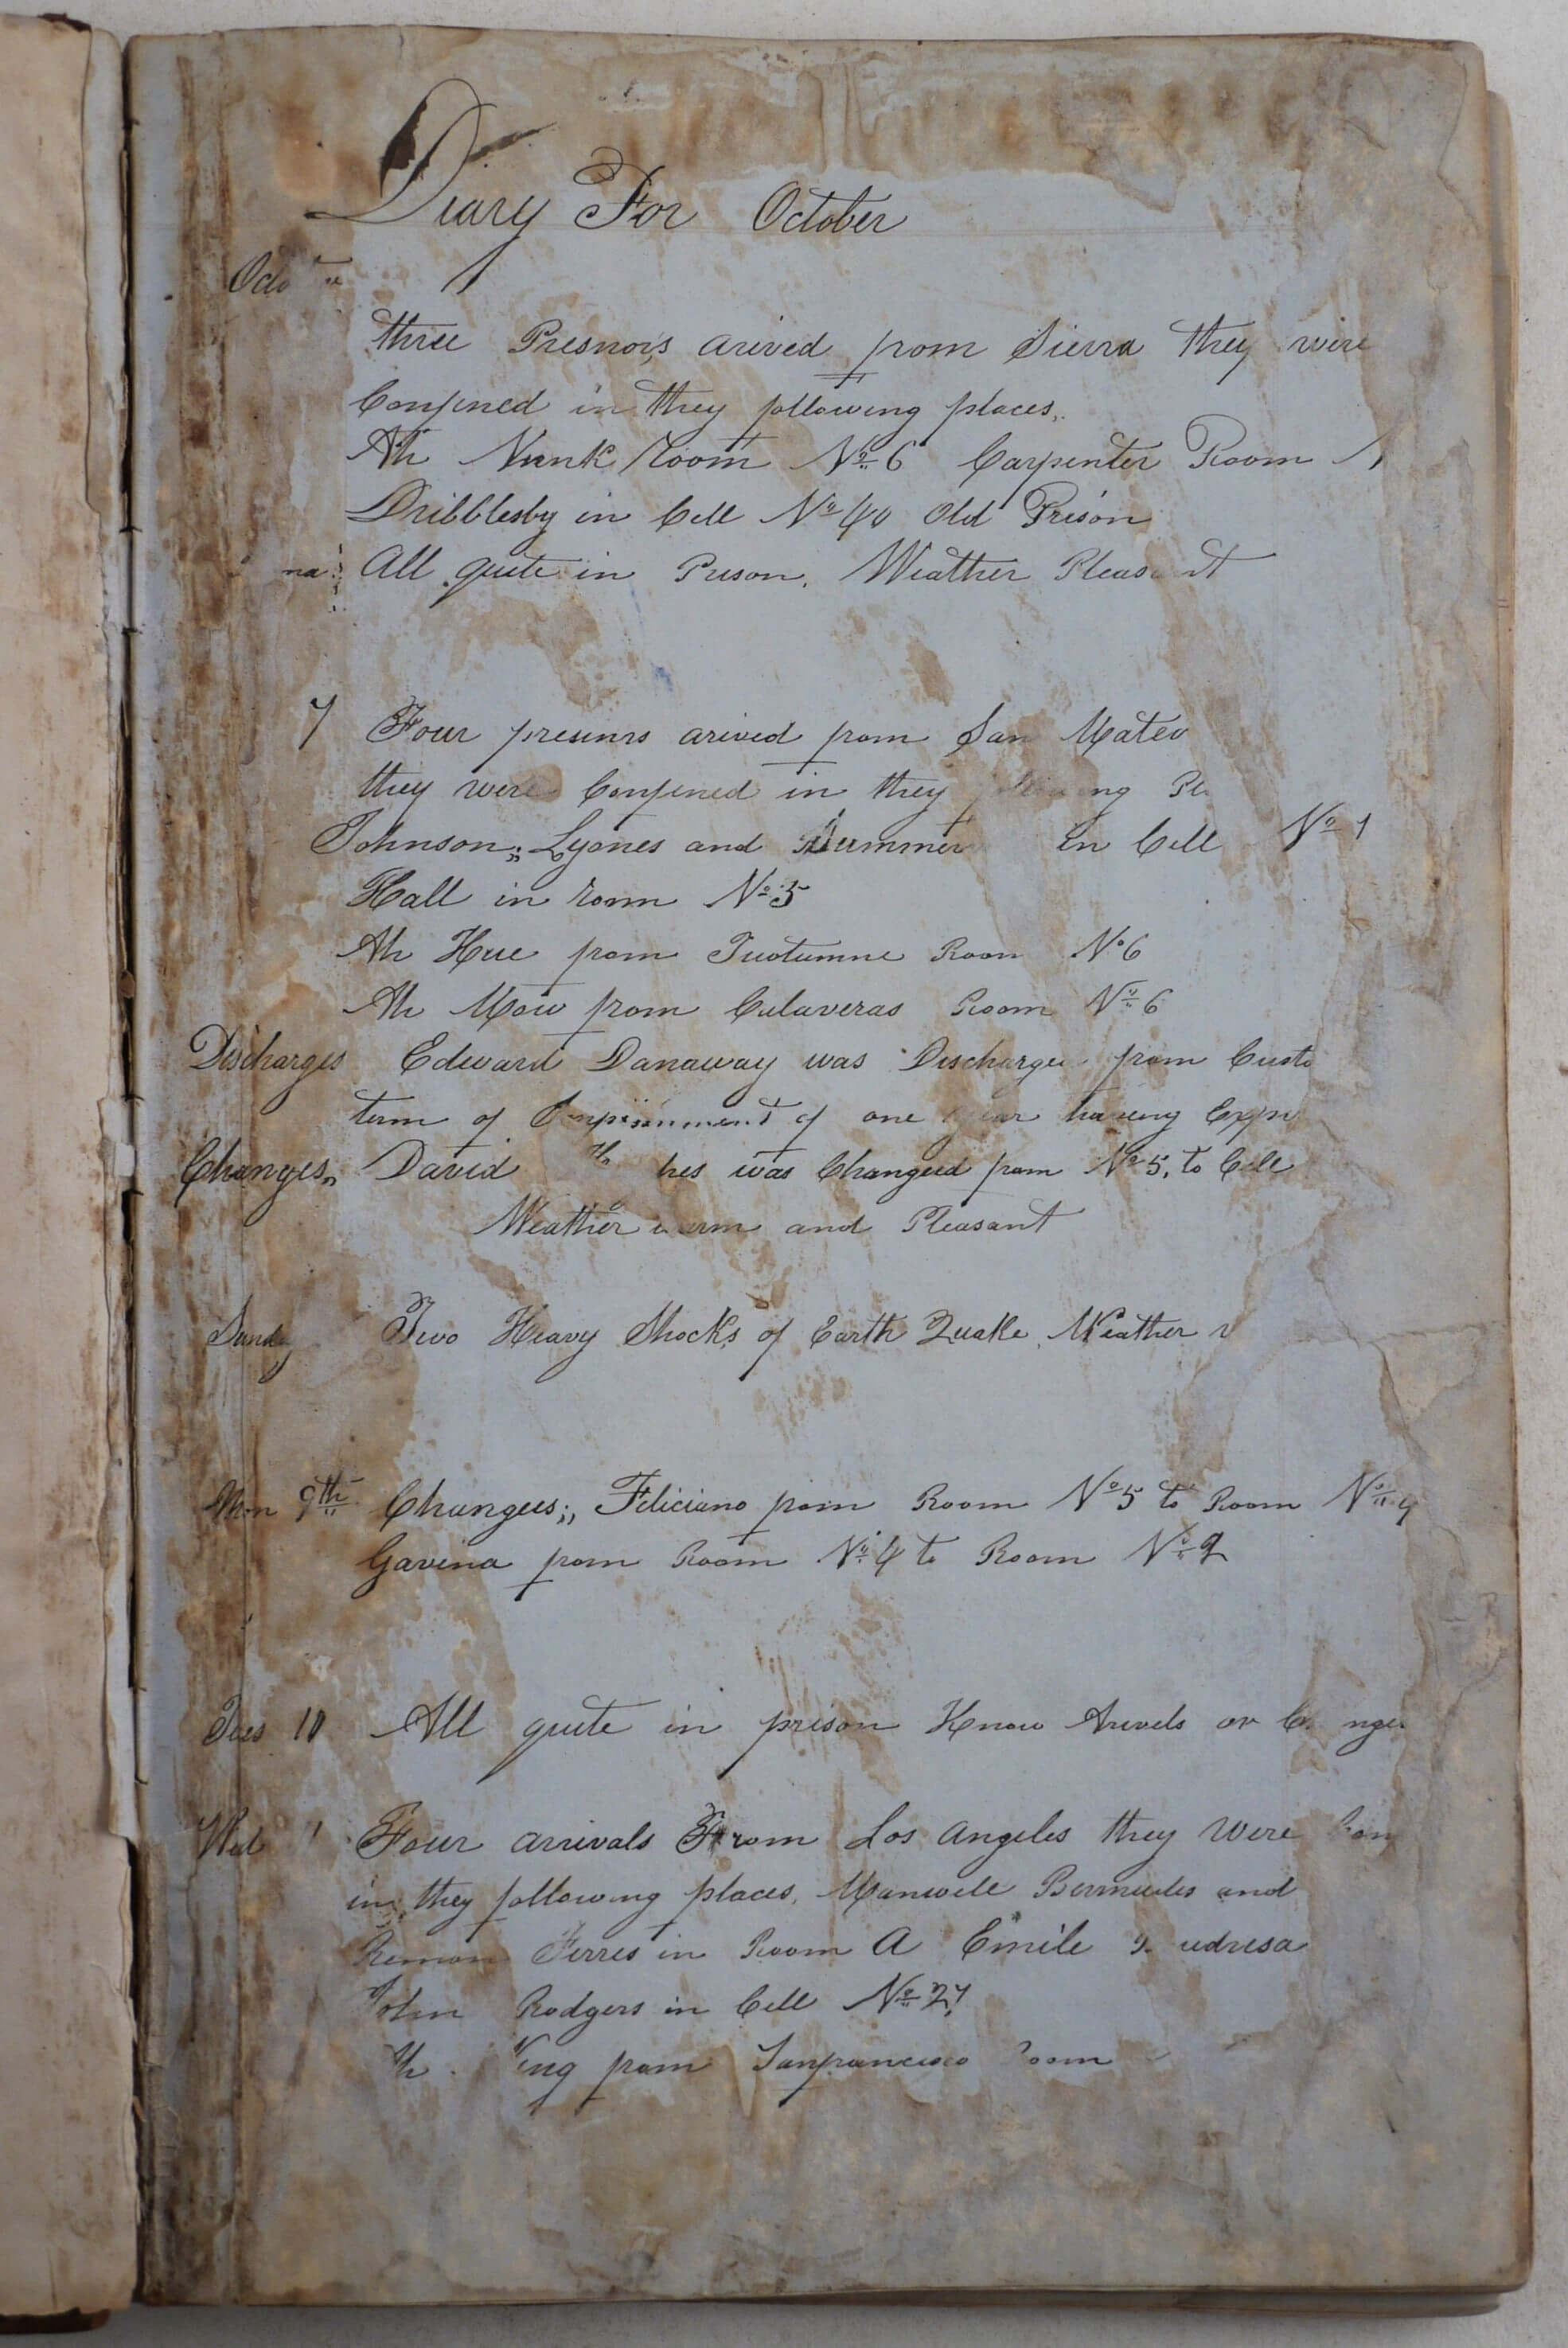 Diary For October
three Presnors arived from Sierra they were
Confined in they following places.
Ah Nunk Room No 6 Carpenter Room
Dribblesby in Cell No 40 Old Prison
All quite in Prison. Weather Pleasant
7 Four presnrs arived from San Mateo
they were Confined in they following
Johnson; Lyones and in Cell No 1
Hall in room No 5
Ah Hue from Tuotumne Room No 6
Ah Mow from Calaveras Room No 6
Discharges Edward Danaway was Discharged from
term of of one year having
Changes David was Changed from No 5, to Cell
Weather warm and Pleasant
Sunday Two Heavy Shocks of Earth Quake. Weather
Mon 9th Changes; Feliciano from Room No 5 to Room No 4
Gavina from Room No 4 to Room No 2
Tues 10 All quite in prison Know Arivels or
Wed Four arrivals From Los Angeles they were
in they following places. Manwell Bermudes and
Remon Ferres in Room A Emile
John Rodgers in Cell No 27
from Sanfrancisco